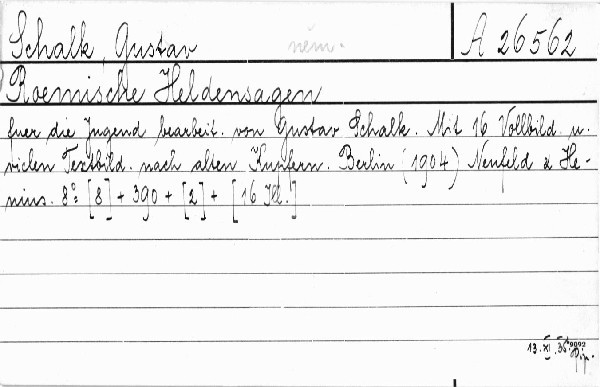 Schalk, Gustav něm. A 26562
Roemische Heldensagen
fuer die Jugend bearbeit. von Gustav Schalk. Mit 16 Vollbild. u.
vielen Textbild. nach alten Kupfern. Berlin (1904) Neufeld & He-
nius. 8º: [8] + 390 + [2] + [16 Il.]
13. XI. 35.